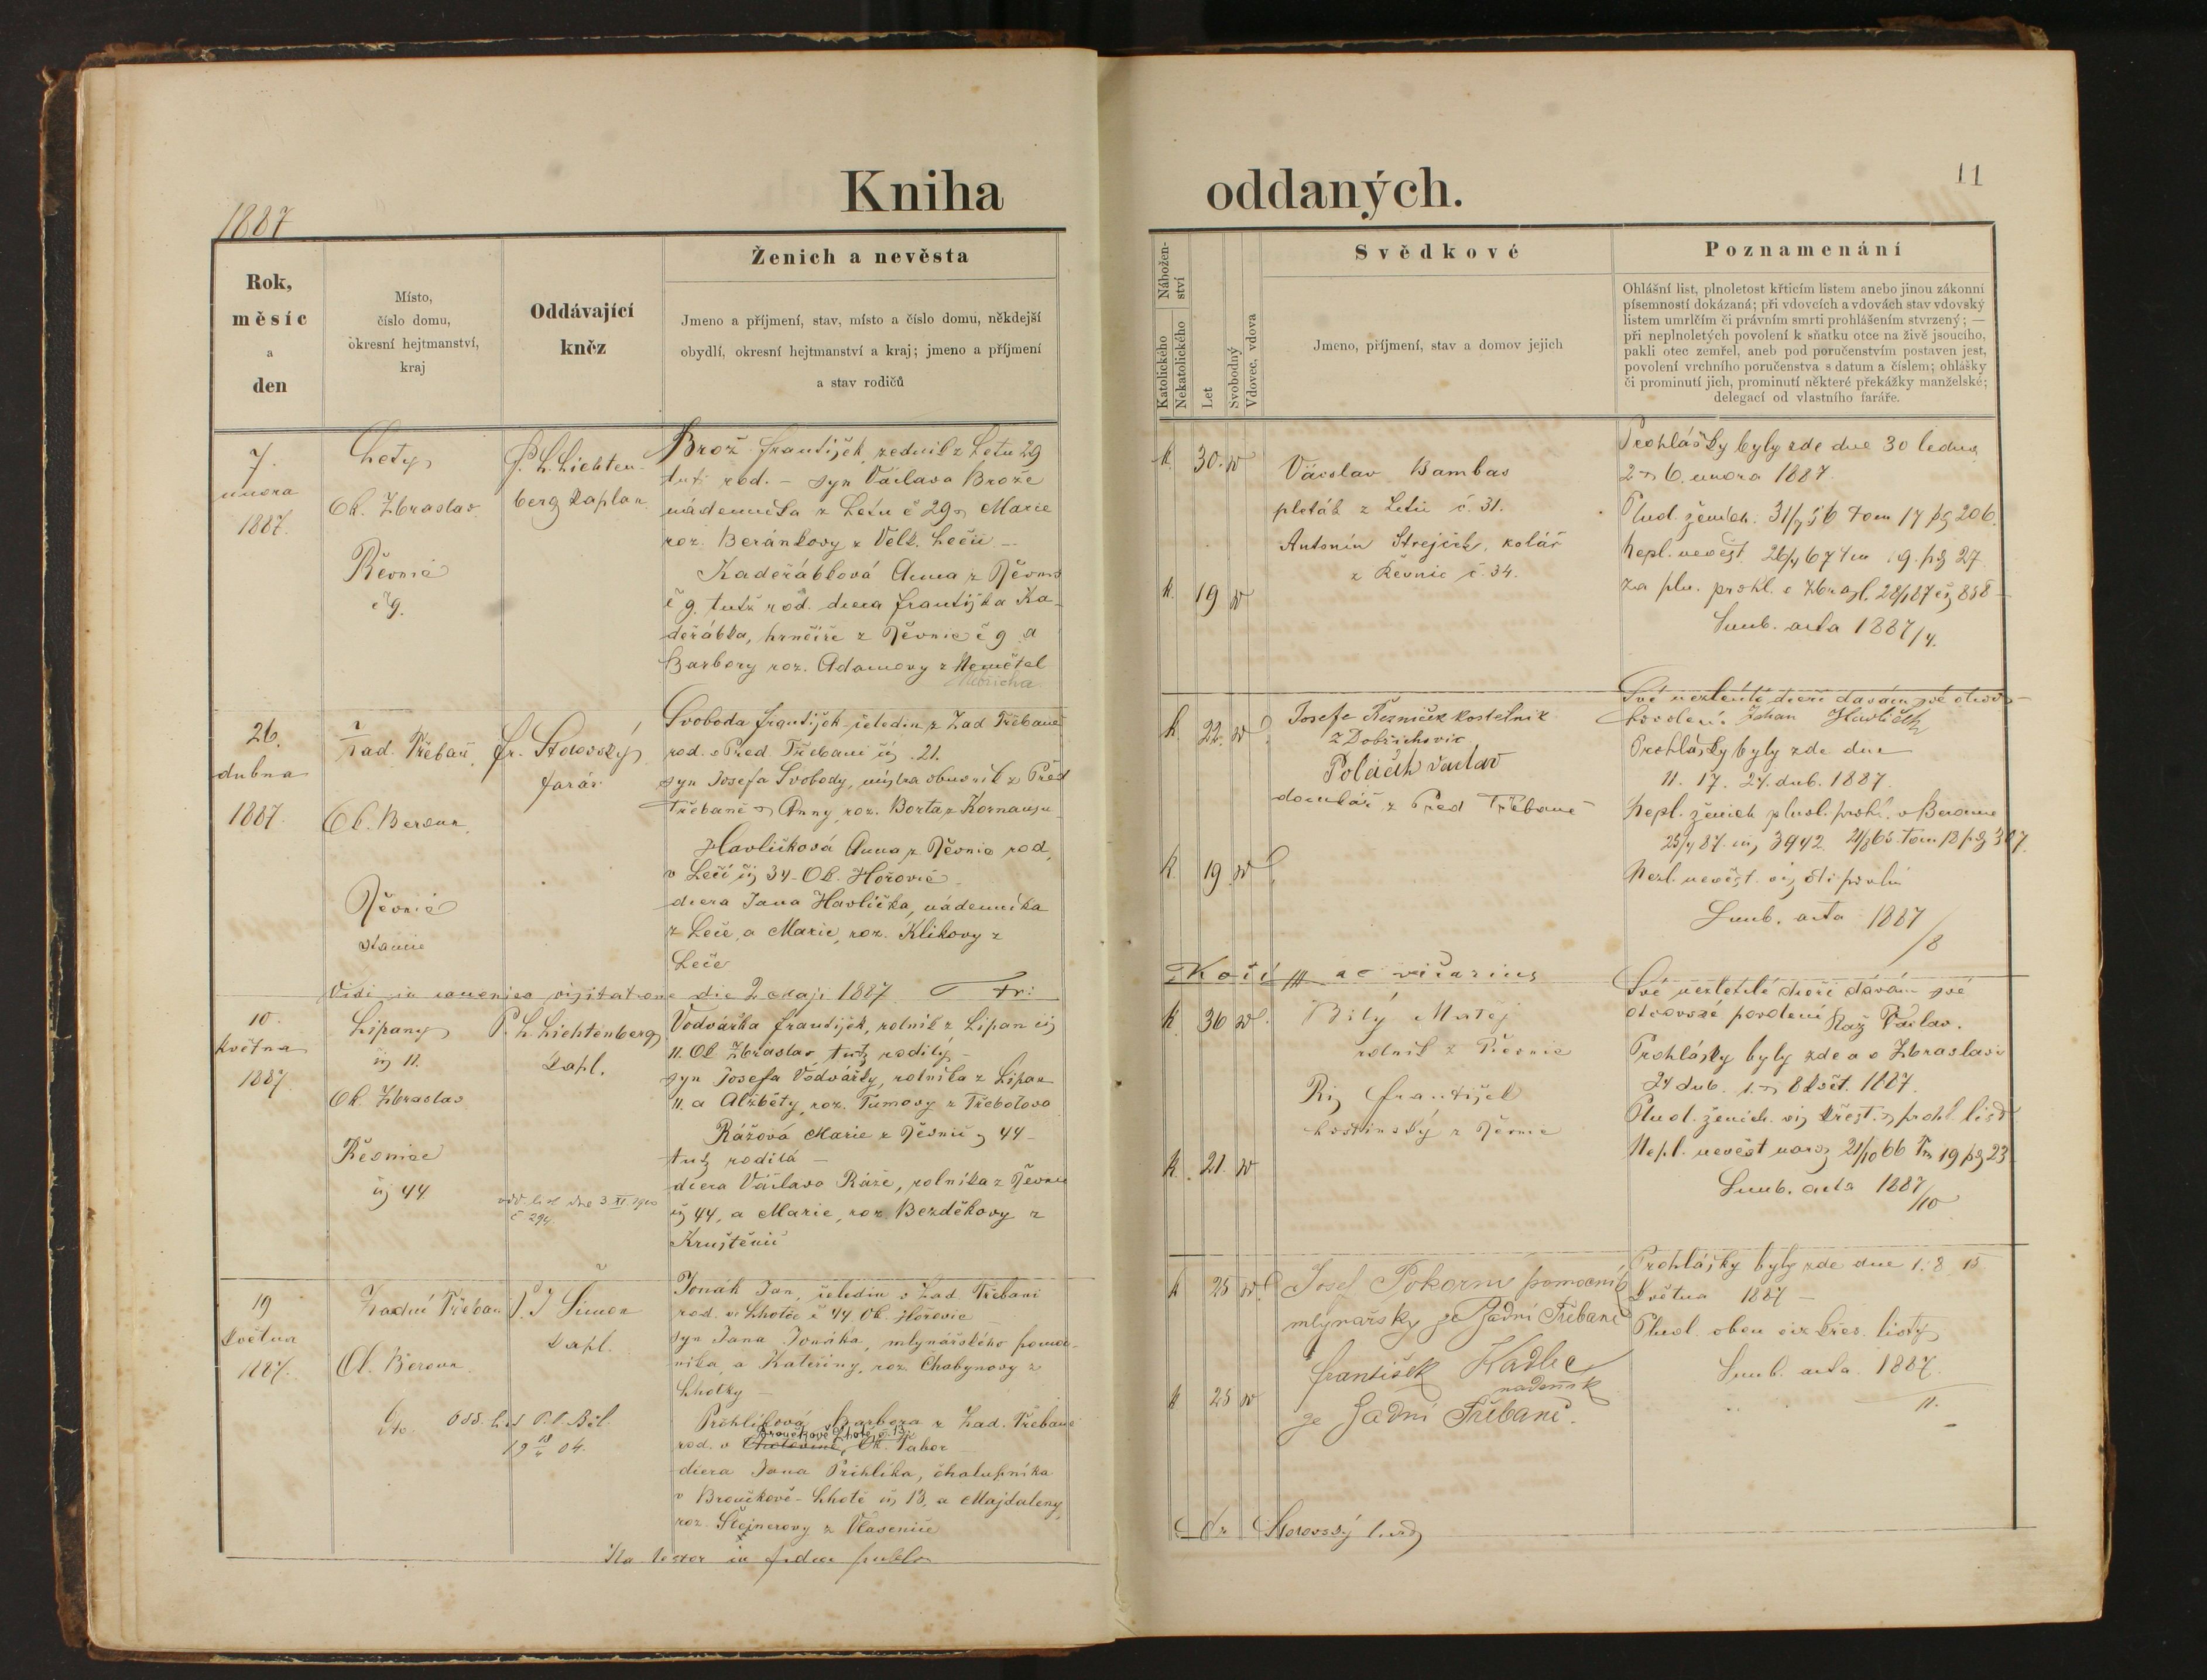 Kniha
oddaných.
11
1887
Rok,
měsíc
a
den
Místo,
číslo domu,
okresní hejtmanství,
kraj
Oddávající
kněz
Ženich a nevěsta
Jmeno a příjmení, stav, místo a číslo domu, někdejší
obydlí, okresní hejtmanství a kraj; jmeno a příjmení
a stav rodičů
Nábožen-
ství
Katolického
Nekatolického
Let
Svobodný
Vdovec, vdova
Svědkové
Jmeno, příjmení, stav a domov jejich
Poznamenání
Ohlášní list, plnoletost křticím listem anebo jinou zákonní
písemností dokázaná; při vdovcích a vdovách stav vdovský
listem umrlčím či právním smrti prohlášením stvrzený; —
při neplnoletých povolení k sňatku otce na živě jsoucího,
pakli otec zemřel, aneb pod poručenstvím postaven jest,
povolení vrchního poručenstva s datum a číslem; ohlášky
či prominutí jich, prominutí některé překážky manželské;
delegací od vlastního faráře.
7.
unora
1887.
Lety
Ok. Zbraslav
Řevnic
č 9.
P. L. Lichten-
berg kaplan
Brož František, zedník z Letu 29
tutž rod. - syn Václava Brože
nádenníka z Letu č 29 Marie
roz. Beránkovy z Velk. Lečic -
Kadeřábková Anna z Řevnic
č 9. tutž rod. dcera Františka Ka-
deřábka, hrnčíře z Řevnic č 9 a
Barbory roz. Adamovy z
k. 30.
k. 19
Václav Bambas
z Letů č. 31.
Antonín Strejček, kolář
z Řevnic č. 34.
Prohlášky byly zde dne 30 ledna
2 6. unora 1887.
Plnol. ženich. 31/7 56 Tom 17 pg 206.
Nepl. nevěst. 26/4 67 Tom 19. pg 27
Snub. acta 1887/4.
26.
dubna
1887.
Zad. Třebaň,
Ok. Beroun,
Řevnic
stanice
Fr. Stovoský
farář
Svoboda František čeledín z Zad Třebaně
rod. v Před Třebani čis. 21.
syn Josefa Svobody, mistra obuvník z Před
Třebaně Anny, roz. Borta z Kornausu
Havlíčková Anna z Řevnic rod,
v Leči čis 34. Ok. Hořovic
dcera Jana Havlíčka, nádenníka
z Leče, a Marie, roz. Klikovy z
Leče
k. 22.
k. 19
Josefa Řezníček kostelník
z Dobřichovic
Poláček Václav
domkář z Před Třebaně
Své nezletilé dceři dávám své otcov-
povolení. Johan Havlíček
Prohlášky byly zde dne
11. 17. 24. dub. 1887.
Nepl. ženich plnol. prohl. v Berouně
25/4 87. čis 3942. Tom 18 pg 307.
Snub. acta 1887/8
Vidi in canonica visitatione die 2 Maji 1887
10.
května
1887.
Lipany
čis 11.
Ok. Zbraslav
Řevnice
čis 44
P. L. Lichtenberg
kapl.
odd list dne 3 XI 1900
č 294
Vodvářka František, rolník z Lipan čis
11. Ok Zbraslav tutž rodilý -
syn Josefa Vodvářky, rolníka z Lipan
11. a Alžběty, roz. Tůmovy z Třebotova
Rážová Marie z Řevnic 44 -
tutž rodilá -
dcera Václava Ráže, rolníka z Řevnic
čis 44, a Marie, roz. Bezděkovy z
Kruštěnic
k. 36
k. 21
Bílý Matěj
rolník z Řevnic
František
hostinský z Řevnic
Své nezletilé dceři dávám své
otcovské povolení Ráž Václav.
Prohlášky byly zde a v Zbraslavi
24 dub. 1. 8 květ. 1887.
Plnol. ženich. viz křest. prohl. list
Nepl. nevěst naroz 21/10 66 Tm 19 pg 23
Snub. acta 1887/10
19
května
1887.
Zadní Třeban
Ok. Beroun
P. J. Šimon
kapl.
Jonák Jan, čeledín v Zad Třebani
rod. ve Lhotce č 44 Ok. Hořovic
syn Jana Jonáka, mlynářského pomoc-
níka a Kateřiny, roz. Chabynovy z
Lhotky -
Prohlíková Barbora z Zad. Třebaně
Broučkově Lhotě č. 13
rod. v Ok. Tabor
dcera Jana Prihlíka, chalupníka
v Broučkově-Lhotě čis 13, a Majdaleny,
roz. Štejnerovy z Vlasenice
k 25
k 25
Josef Pokorný pomocník
mlynářský ze Zadní Třebaně
František Kadlec
nadenik
ze Zadní Třebaně.
Prohlášky byly zde dne 1. 8 15
května 1887 -
Plnol. obou viz křes. listy
Snub. acta 1887.
11.